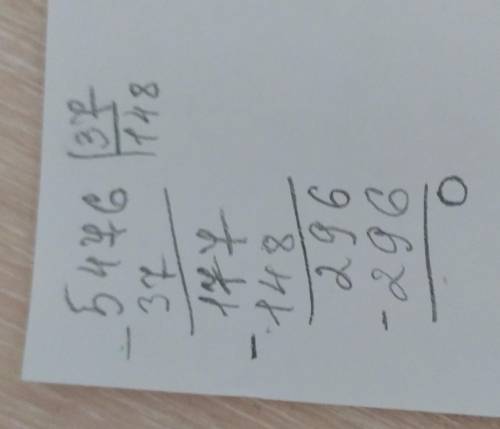 -5476 |37
37 |148
177
-148
296
-296
0